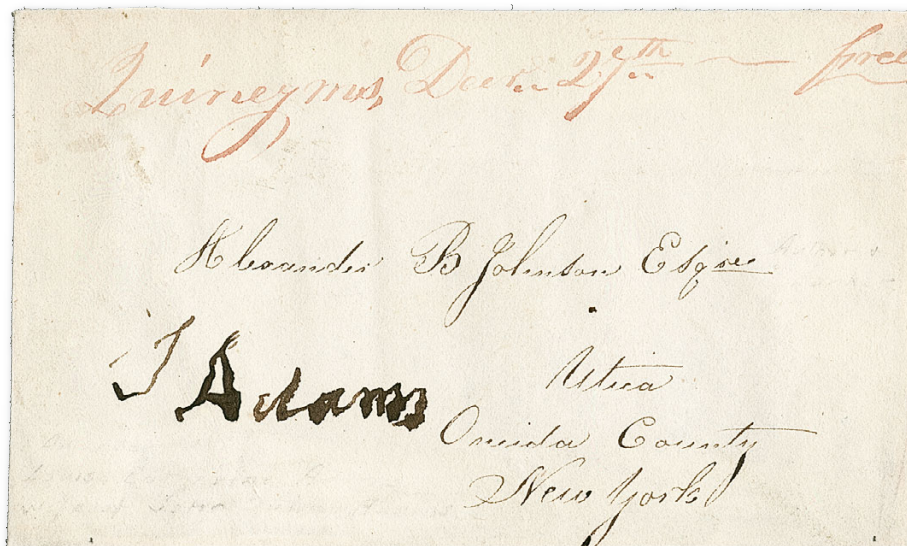 Quincy ms, Decr. 27th free
Alexander B Johnson Esqre
J Adams
Utica
Oneida County
New York